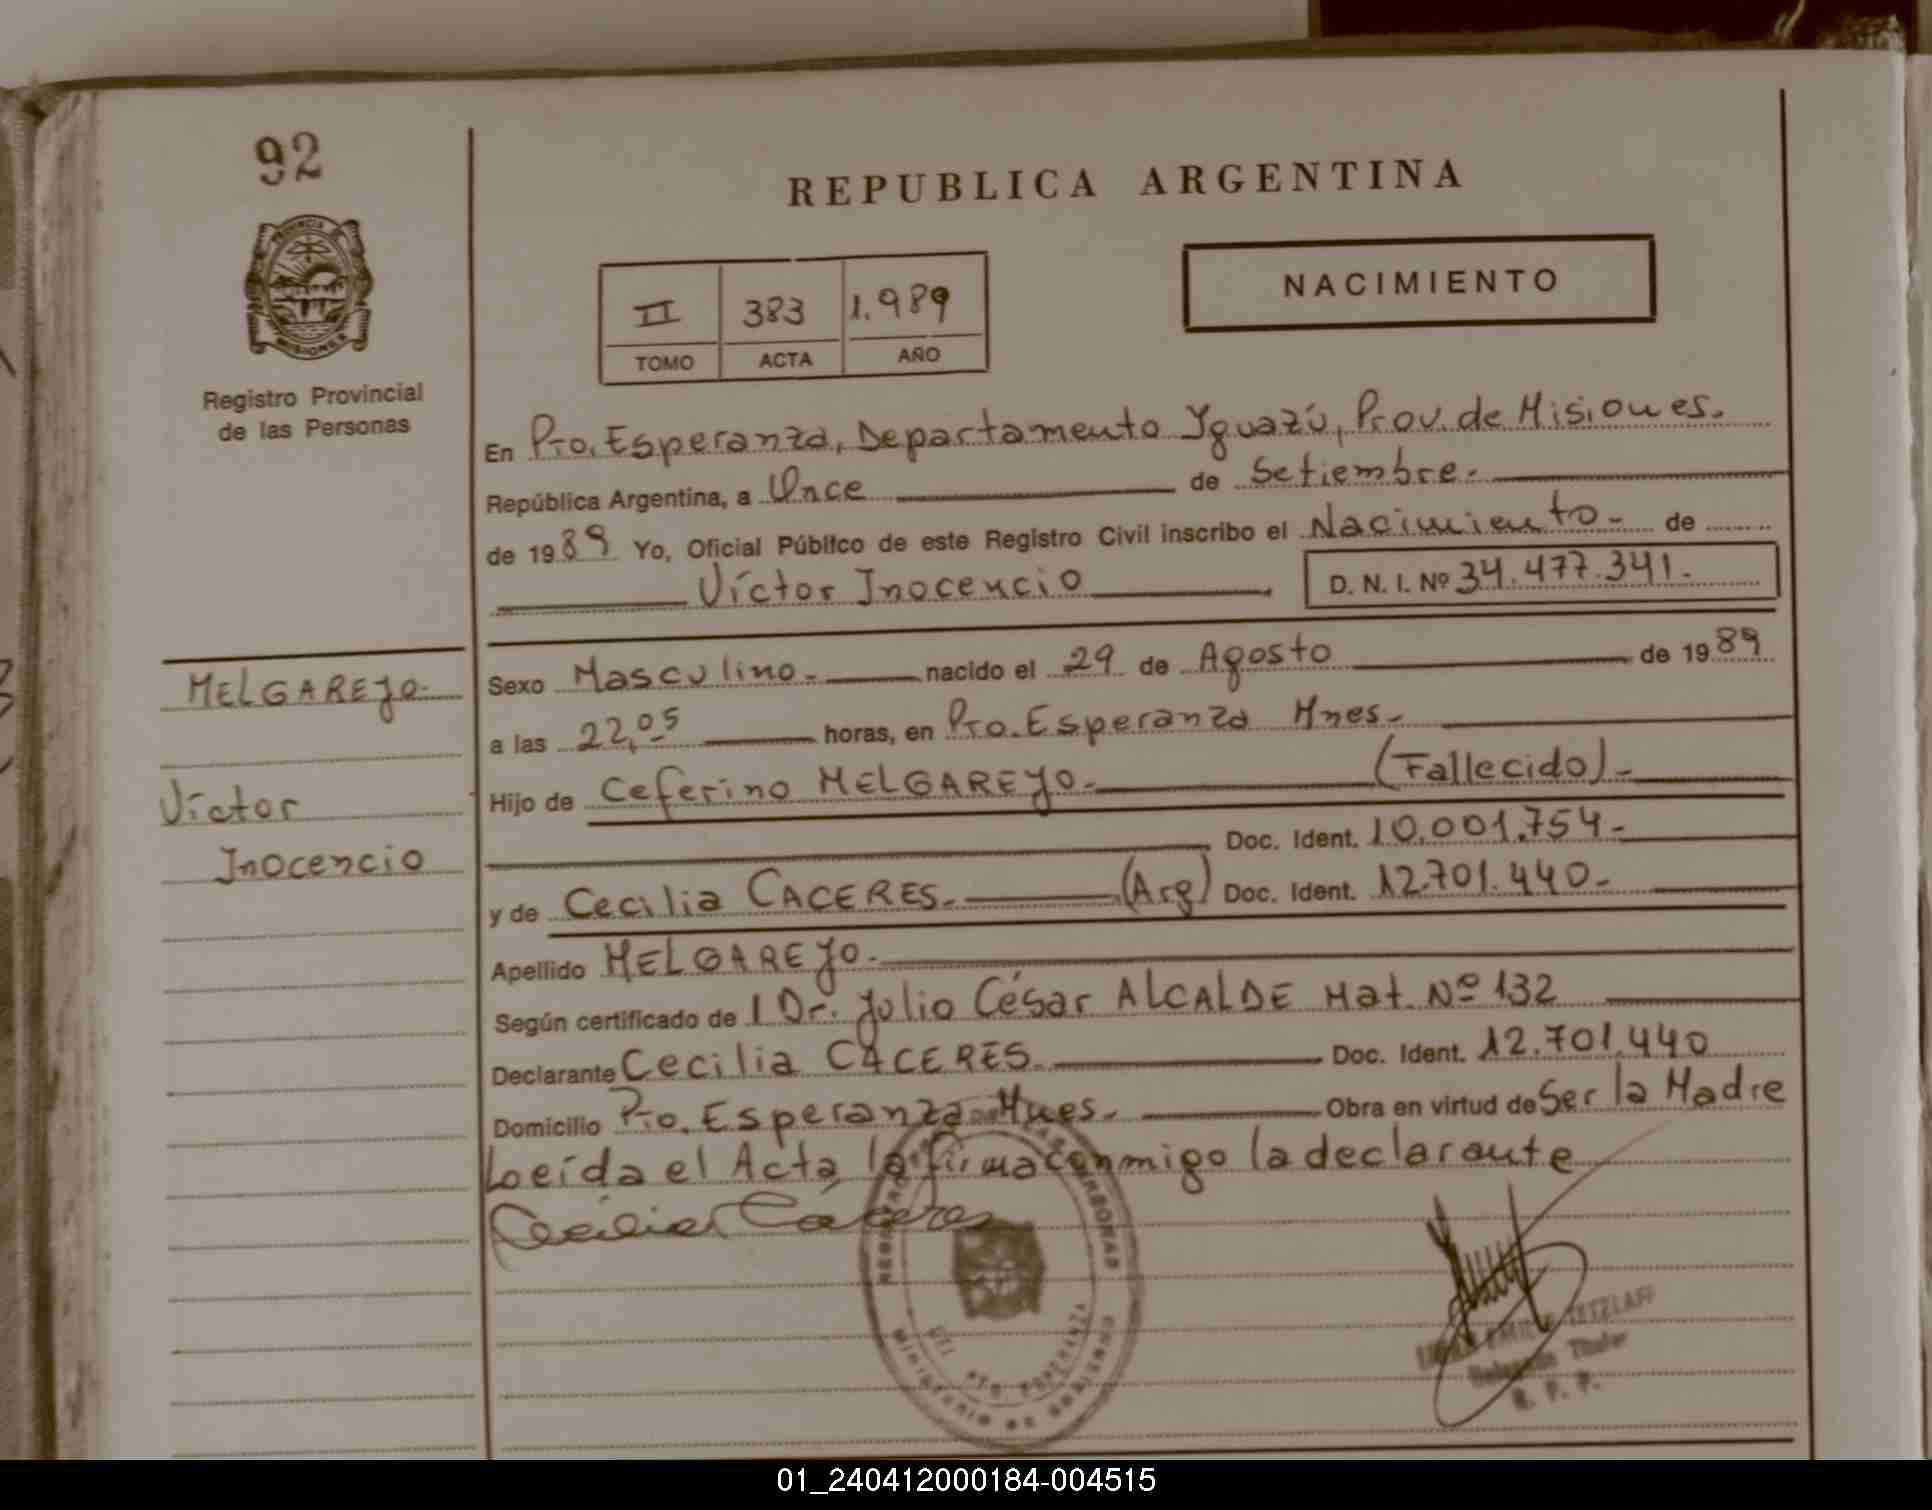 92
REPUBLICA ARGENTINA
PROVINCIA DE
MISIONES
Registro Provincial
de las Personas
NACIMIENTO
II 383 1.989
TOMO ACTA AÑO
En Pto. Esperanza, Departamento Yguazú, Prov. de Misiones.
República Argentina, a Once de Setiembre.
de 1989 Yo, Oficial Público de este Registro Civil inscribo el Nacimiento - de
Víctor Inocencio D. N. I. Nº 34.477.341.
MELGAREJO-
Víctor
Inocencio
Sexo Masculino.- nacido el 29 de Agosto de 1989
a las 22,05 horas, en Pto. Esperanza Mnes.-
Hijo de Ceferino MELGAREJO.- (Fallecido)-
Doc. Ident. 10.001.754-
y de Cecilia CACERES.- (Arg) Doc. Ident. 12.701.440-
Apellido MELGAREJO.-
Según certificado de l Dr. Julio César ALCALDE Mat. Nº 132
Declarante Cecilia CACERES.- Doc. Ident. 12.701.440
Domicilio Pto. Esperanza Mnes.- Obra en virtud de Ser la Madre
Loeída el Acta, la firma conmigo la declarante
Cecilia Cáceres
PTO. ESPERANZA
MINISTERIO DE GOBIERNO
TETZLAFF
Delegado Titular
R. P. P.
01_240412000184-004515